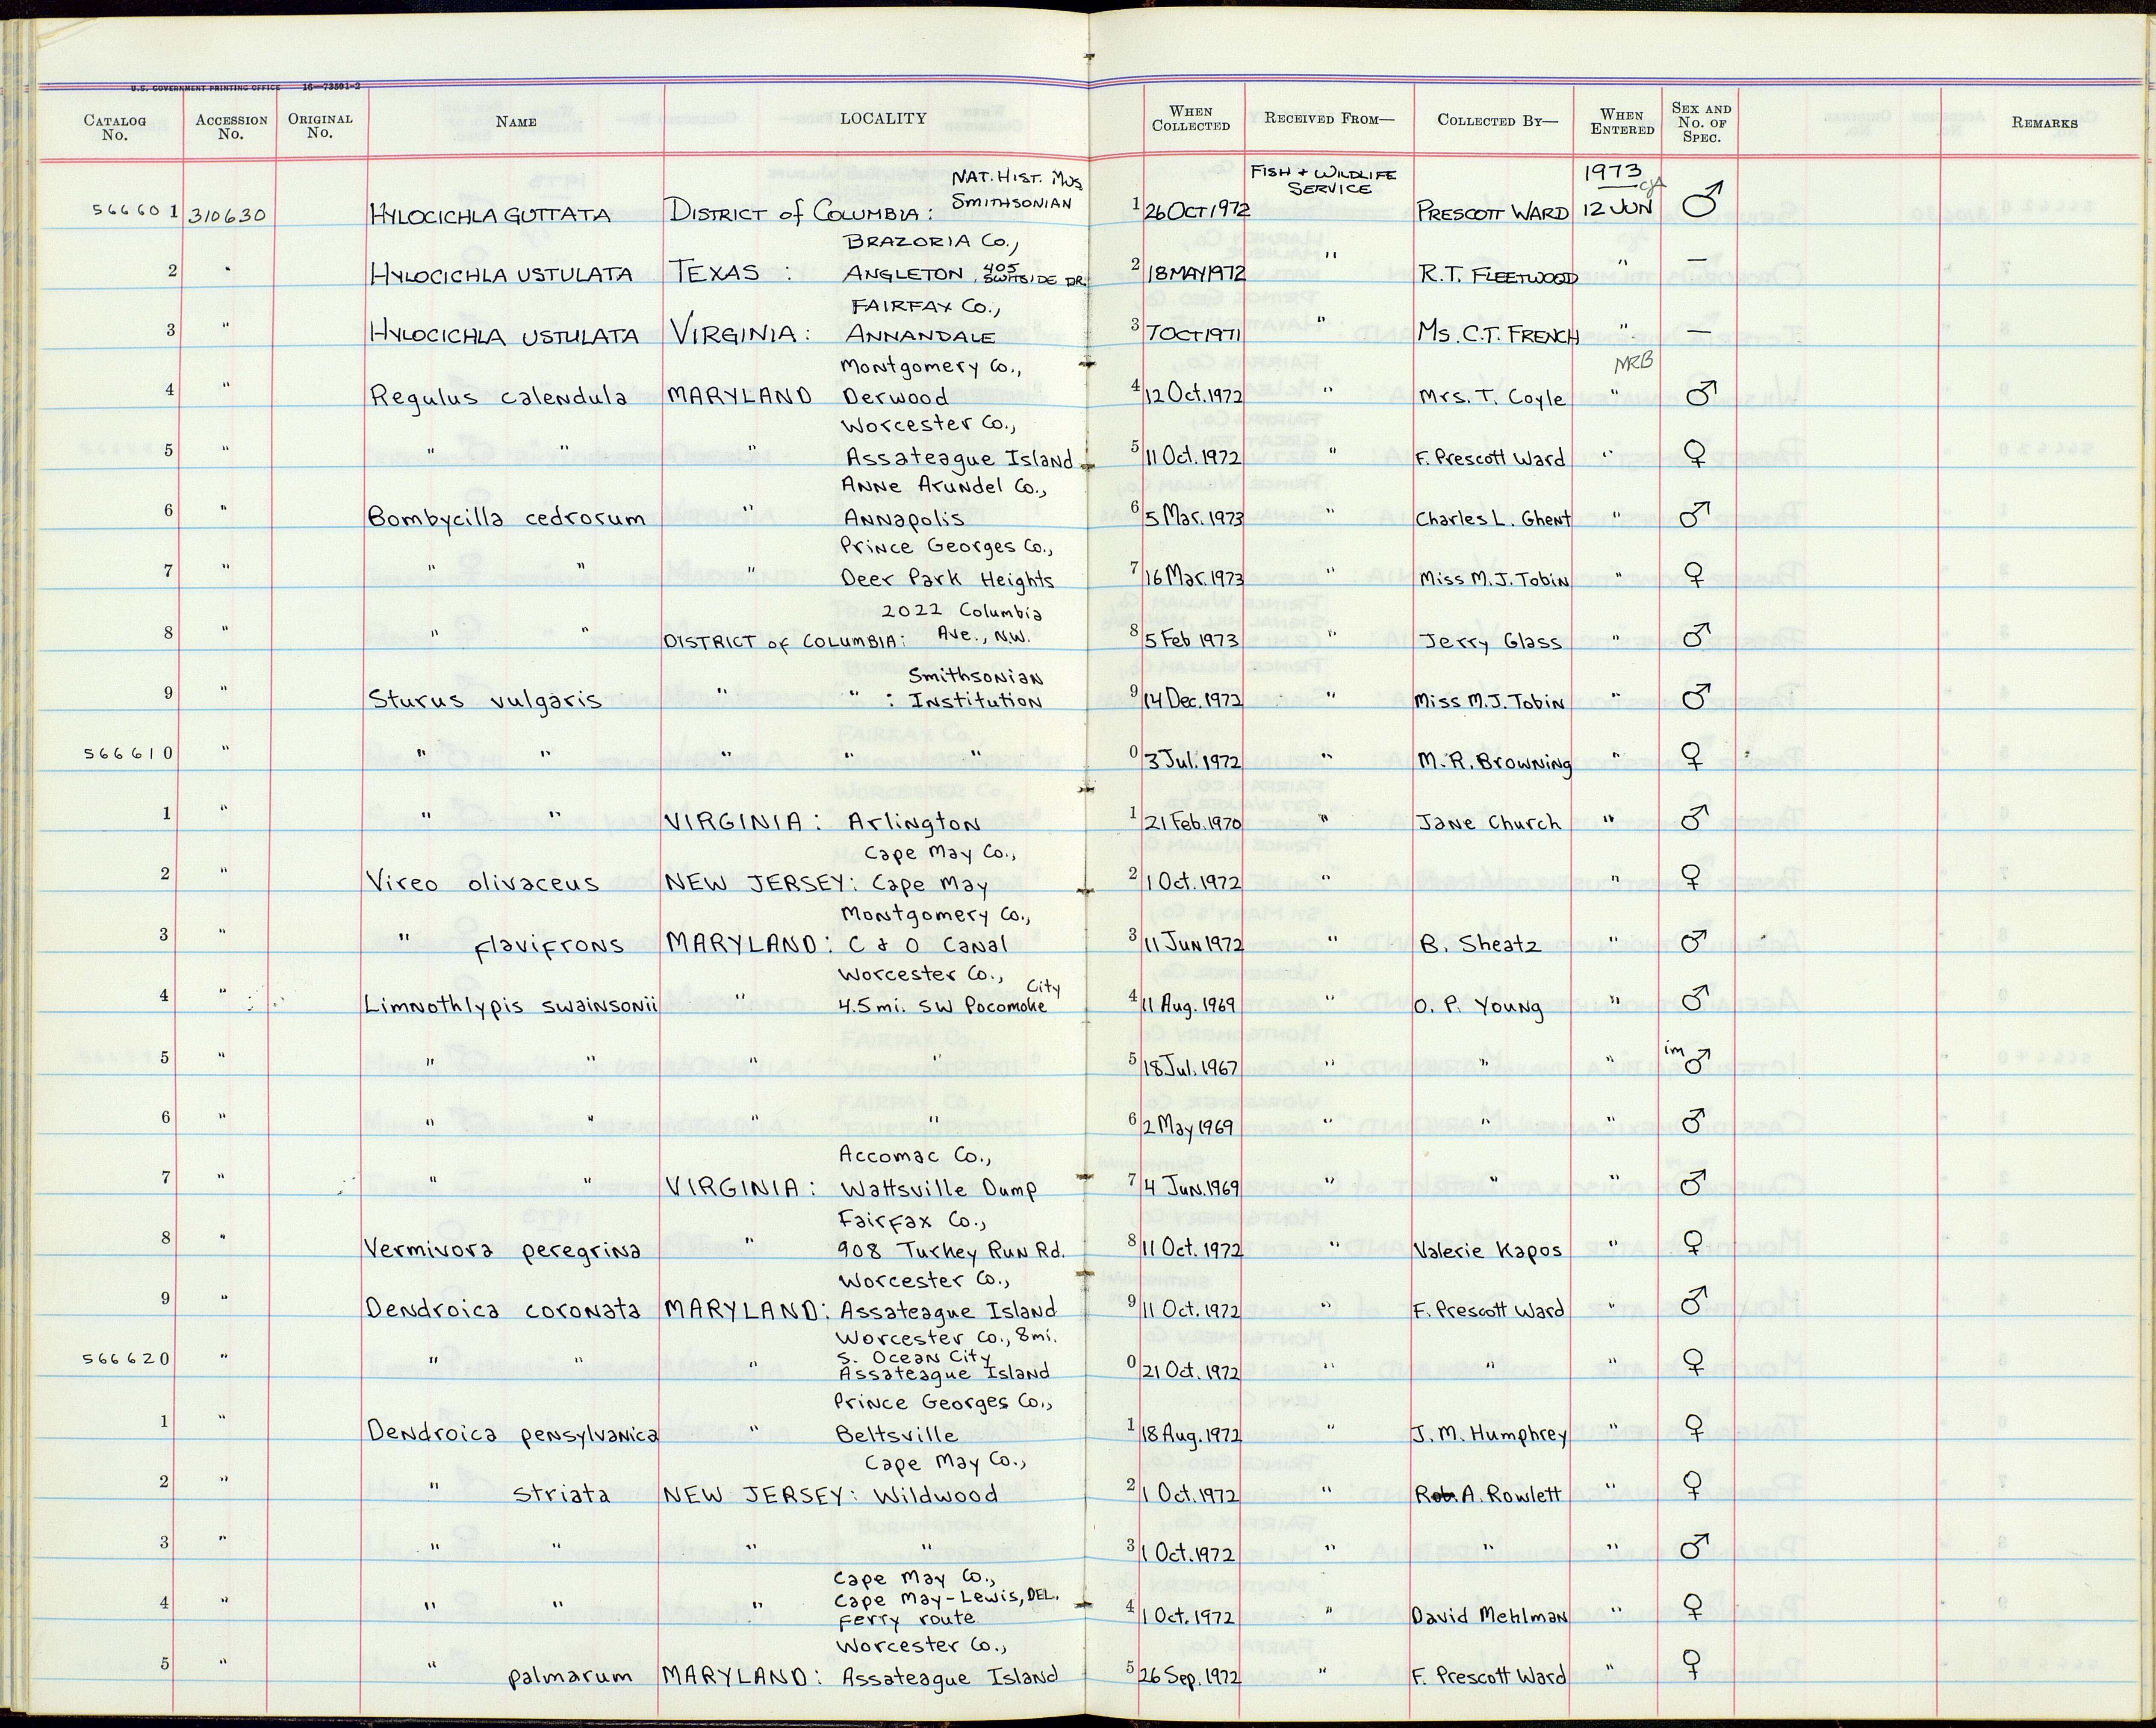 U.S. GOVERNMENT PRINTING OFFICE 16—73591-2
CATALOG No. ACCESSION No. ORIGINAL No. NAME LOCALITY WHEN COLLECTED RECEIVED FROM— COLLECTED BY— WHEN ENTERED SEX AND No. OF SPEC. REMARKS
NAT. HIST. MUS. FISH + WILDLIFE SERVICE 1973
566601 310630 HYLOCICHLA GUTTATA DISTRICT of COLUMBIA: SMITHSONIAN 1 26 OCT 1972 PRESCOTT WARD 12 JUN ♂
BRAZORIA Co.,
2 " HYLOCICHLA USTULATA TEXAS : ANGLETON, 405 DR. 2 18 MAY 1972 " R.T. FLEETWOOD " —
FAIRFAX Co.,
3 " HYLOCICHLA USTULATA VIRGINIA: ANNANDALE 3 7 OCT 1971 " Ms. C.T. FRENCH " —
Montgomery Co., MRB
4 " Regulus calendula MARYLAND Derwood 4 12 Oct. 1972 " Mrs. T. Coyle " ♂
Worcester Co.,
5 " " " " Assateague Island 5 11 Oct. 1972 " F. Prescott Ward " ♀
Anne Arundel Co.,
6 " Bombycilla cedrorum " Annapolis 6 5 Mar. 1973 " Charles L. Ghent " ♂
Prince Georges Co.,
7 " " " " Deer Park Heights 7 16 Mar. 1973 " Miss M.J. Tobin " ♀
2022 Columbia
8 " " " DISTRICT of COLUMBIA: Ave., N.W. 8 5 Feb 1973 " Jerry Glass " ♂
Smithsonian
9 " Sturus vulgaris " " : Institution 9 14 Dec. 1972 " Miss M.J. Tobin " ♂
566610 " " " " " " 0 3 Jul. 1972 " M.R. Browning " ♀
1 " " " VIRGINIA: Arlington 1 21 Feb. 1970 " Jane Church " ♂
Cape May Co.,
2 " Vireo olivaceus NEW JERSEY: Cape May 2 1 Oct. 1972 " " ♀
Montgomery Co.,
3 " " flavifrons MARYLAND: C & O Canal 3 11 Jun 1972 " B. Sheatz " ♂
Worcester Co., City
4 " Limnothlypis swainsonii " 4.5 mi. SW Pocomoke 4 11 Aug. 1969 " O. P. Young " ♂
5 " " " " " 5 18 Jul. 1967 " " " im ♂
6 " " " " " 6 2 May 1969 " " " ♂
Accomac Co.,
7 " " " VIRGINIA: Wattsville Dump 7 4 Jun. 1969 " " " ♂
Fairfax Co.,
8 " Vermivora peregrina " 908 Turkey Run Rd. 8 11 Oct. 1972 " Valerie Kapos " ♀
Worcester Co.,
9 " Dendroica coronata MARYLAND: Assateague Island 9 11 Oct. 1972 " F. Prescott Ward " ♂
Worcester Co., 8mi.
S. Ocean City
566620 " " " " Assateague Island 0 21 Oct. 1972 " " " ♀
Prince Georges Co.,
1 " Dendroica pensylvanica " Beltsville 1 18 Aug. 1972 " J. M. Humphrey " ♀
Cape May Co.,
2 " " striata NEW JERSEY: Wildwood 2 1 Oct. 1972 " Rob. A. Rowlett " ♀
3 " " " " " 3 1 Oct. 1972 " " " ♂
Cape May Co.,
Cape May-Lewis, DEL.
4 " " " " ferry route 4 1 Oct. 1972 " David Mehlman " ♀
Worcester Co.,
5 " " palmarum MARYLAND: Assateague Island 5 26 Sep. 1972 " F. Prescott Ward " ♀